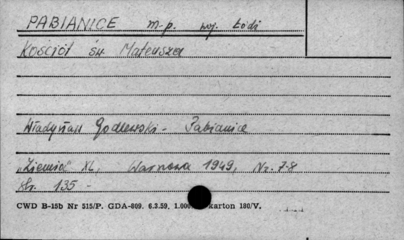 PABIANICE m-p. woj. Łódź
Kościół św. Mateusza
Władysław Godlewski - Pabianice
"Ziemia" XL, Warszawa 1949, Nr. 7-8
str. 135 -
CWD B-15b Nr 515/P. GDA-809. 6.3.59. 1.000 karton 180/V.